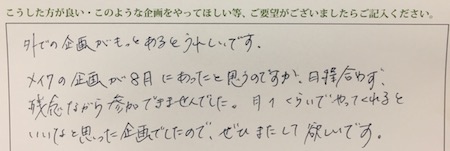 こうした方が良い・このような企画をやってほしい等、ご要望がございましたらご記入ください。
外での企画がもっとあるとうれしいです。
メイクの企画が8月にあったと思うのですが、日時合わず、
残念ながら参加できませんでした。月1くらいでやってくれると
いいなと思った企画でしたので、ぜひまたして欲しいです。